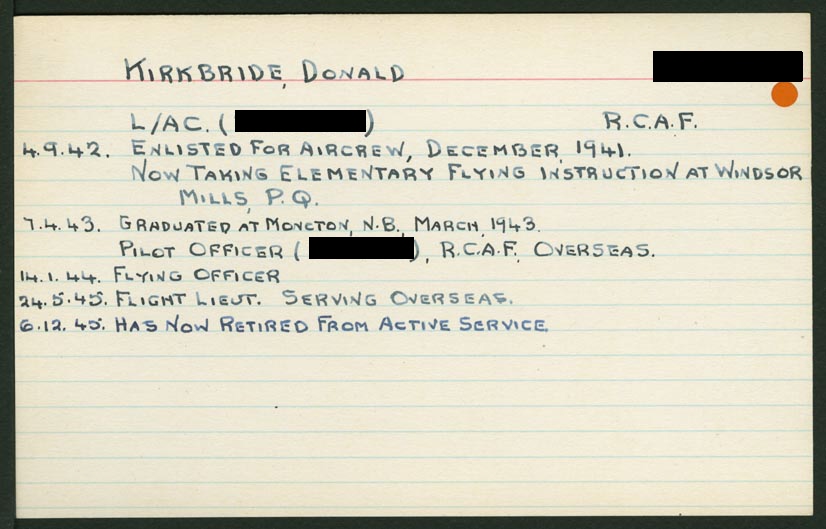 KIRKBRIDE, DONALD
L/AC. ( ) R.C.A.F.
4.9.42. ENLISTED FOR AIRCREW, DECEMBER, 1941.
NOW TAKING ELEMENTARY FLYING INSTRUCTION AT WINDSOR
MILLS, P.Q.
7.4.43. GRADUATED AT MONCTON, N.B., MARCH, 1943.
PILOT OFFICER ( ), R.C.A.F. OVERSEAS.
14.1.44. FLYING OFFICER
24.5.45. FLIGHT LIEUT. SERVING OVERSEAS.
6.12.45. HAS NOW RETIRED FROM ACTIVE SERVICE.